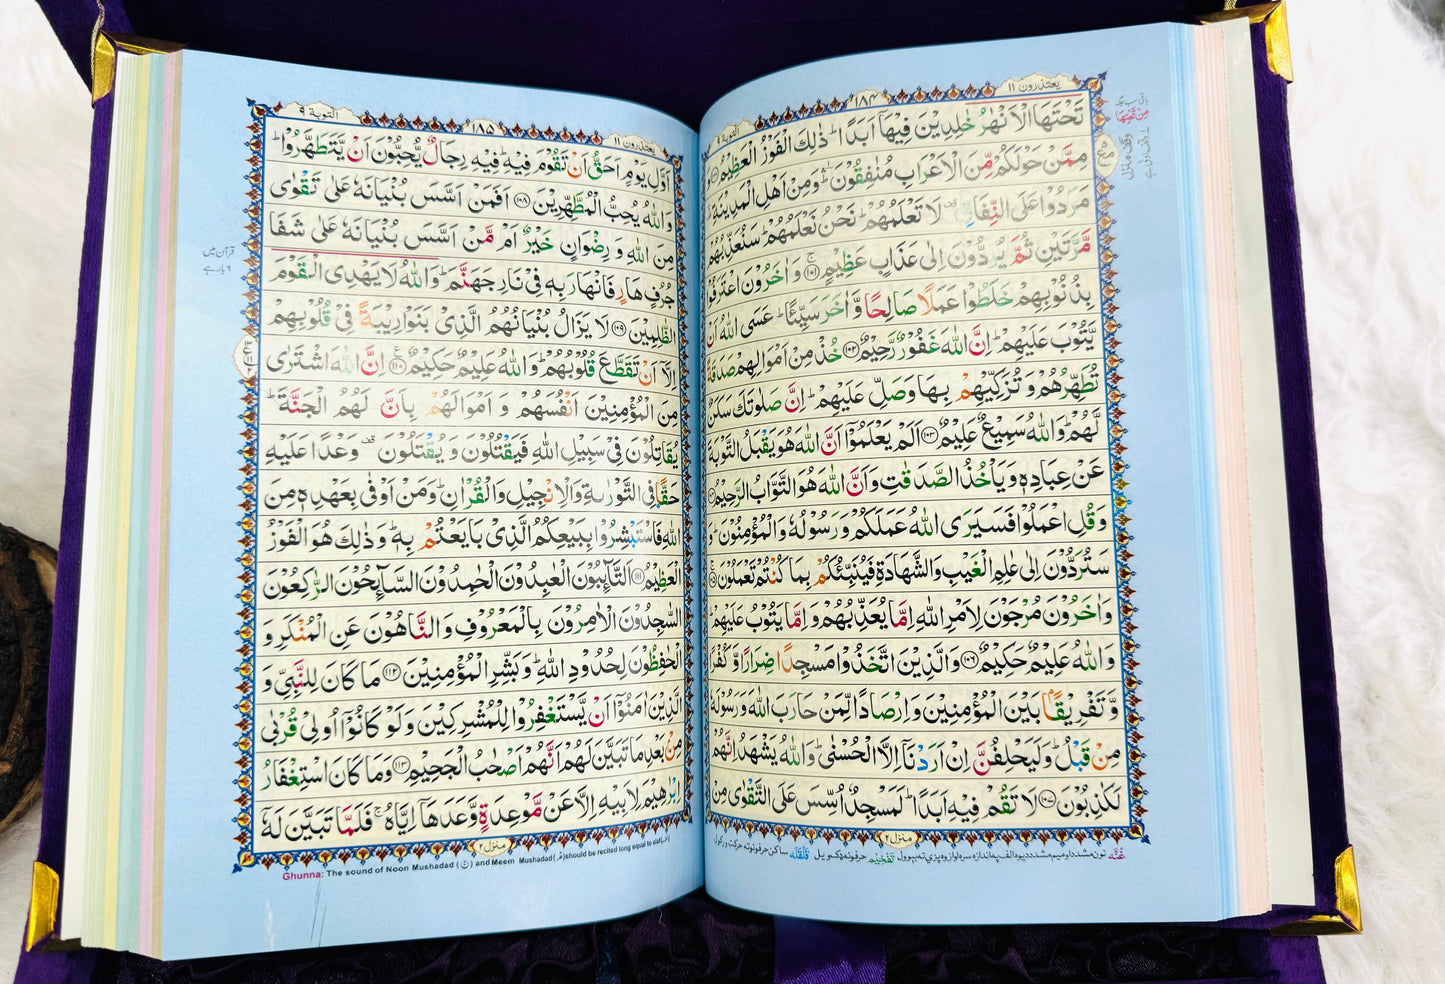 یعتذرون ١١
١٨٤
التوبة ٩
تَحْتَهَا الْاَنْهٰرُ خٰلِدِيْنَ فِيْهَاۤ اَبَدًا ؕ ذٰلِكَ الْفَوْزُ الْعَظِيْمُ ﴿١٠٠﴾ وَ
مِمَّنْ حَوْلَكُمْ مِّنَ الْاَعْرَابِ مُنٰفِقُوْنَ ۛؕ وَمِنْ اَهْلِ الْمَدِيْنَةِ ۛ
مَرَدُوْا عَلَى النِّفَاقِ ۫ لَا تَعْلَمُهُمْ ؕ نَحْنُ نَعْلَمُهُمْ ؕ سَنُعَذِّبُهُمْ
مَّرَّتَيْنِ ثُمَّ يُرَدُّوْنَ اِلٰى عَذَابٍ عَظِيْمٍ ﴿١٠١﴾ۚ وَ اٰخَرُوْنَ اعْتَرَفُوْا
بِذُنُوْبِهِمْ خَلَطُوْا عَمَلًا صَالِحًا وَّ اٰخَرَ سَيِّئًا ؕ عَسَى اللّٰهُ اَنْ
يَّتُوْبَ عَلَيْهِمْ ؕ اِنَّ اللّٰهَ غَفُوْرٌ رَّحِيْمٌ ﴿١٠٢﴾ خُذْ مِنْ اَمْوَالِهِمْ صَدَقَةً
تُطَهِّرُهُمْ وَ تُزَكِّيْهِمْ بِهَا وَصَلِّ عَلَيْهِمْ ؕ اِنَّ صَلٰوتَكَ سَكَنٌ
لَّهُمْ ؕ وَاللّٰهُ سَمِيْعٌ عَلِيْمٌ ﴿١٠٣﴾ اَلَمْ يَعْلَمُوْۤا اَنَّ اللّٰهَ هُوَ يَقْبَلُ التَّوْبَةَ
عَنْ عِبَادِهٖ وَ يَاْخُذُ الصَّدَقٰتِ وَ اَنَّ اللّٰهَ هُوَ التَّوَّابُ الرَّحِيْمُ ﴿١٠٤﴾
وَ قُلِ اعْمَلُوْا فَسَيَرَى اللّٰهُ عَمَلَكُمْ وَ رَسُوْلُهٗ وَ الْمُؤْمِنُوْنَ ؕ وَ
سَتُرَدُّوْنَ اِلٰى عٰلِمِ الْغَيْبِ وَالشَّهَادَةِ فَيُنَبِّئُكُمْ بِمَا كُنْتُمْ تَعْمَلُوْنَ ﴿١٠٥﴾ۚ
وَ اٰخَرُوْنَ مُرْجَوْنَ لِاَمْرِ اللّٰهِ اِمَّا يُعَذِّبُهُمْ وَ اِمَّا يَتُوْبُ عَلَيْهِمْ ؕ
وَ اللّٰهُ عَلِيْمٌ حَكِيْمٌ ﴿١٠٦﴾ وَالَّذِيْنَ اتَّخَذُوْا مَسْجِدًا ضِرَارًا وَّ كُفْرًا
وَّ تَفْرِيْقًۢا بَيْنَ الْمُؤْمِنِيْنَ وَ اِرْصَادًا لِّمَنْ حَارَبَ اللّٰهَ وَ رَسُوْلَهٗ
مِنْ قَبْلُ ؕ وَلَيَحْلِفُنَّ اِنْ اَرَدْنَاۤ اِلَّا الْحُسْنٰى ؕ وَاللّٰهُ يَشْهَدُ اِنَّهُمْ
لَكٰذِبُوْنَ ﴿١٠٧﴾ لَا تَقُمْ فِيْهِ اَبَدًا ؕ لَمَسْجِدٌ اُسِّسَ عَلَى التَّقْوٰى مِنْ
منزل ٢
یعتذرون ١١
١٨٥
التوبة ٩
اَوَّلِ يَوْمٍ اَحَقُّ اَنْ تَقُوْمَ فِيْهِ ؕ فِيْهِ رِجَالٌ يُّحِبُّوْنَ اَنْ يَّتَطَهَّرُوْا ؕ
وَ اللّٰهُ يُحِبُّ الْمُطَّهِّرِيْنَ ﴿١٠٨﴾ اَفَمَنْ اَسَّسَ بُنْيَانَهٗ عَلٰى تَقْوٰى
مِنَ اللّٰهِ وَ رِضْوَانٍ خَيْرٌ اَمْ مَّنْ اَسَّسَ بُنْيَانَهٗ عَلٰى شَفَا
جُرُفٍ هَارٍ فَانْهَارَ بِهٖ فِيْ نَارِ جَهَنَّمَ ؕ وَاللّٰهُ لَا يَهْدِى الْقَوْمَ
الظّٰلِمِيْنَ ﴿١٠٩﴾ لَا يَزَالُ بُنْيَانُهُمُ الَّذِيْ بَنَوْا رِيْبَةً فِيْ قُلُوْبِهِمْ
اِلَّاۤ اَنْ تَقَطَّعَ قُلُوْبُهُمْ ؕ وَاللّٰهُ عَلِيْمٌ حَكِيْمٌ ﴿١١٠﴾ اِنَّ اللّٰهَ اشْتَرٰى
مِنَ الْمُؤْمِنِيْنَ اَنْفُسَهُمْ وَ اَمْوَالَهُمْ بِاَنَّ لَهُمُ الْجَنَّةَ ؕ
يُقَاتِلُوْنَ فِيْ سَبِيْلِ اللّٰهِ فَيَقْتُلُوْنَ وَ يُقْتَلُوْنَ ۫ وَعْدًا عَلَيْهِ
حَقًّا فِى التَّوْرٰىةِ وَ الْاِنْجِيْلِ وَ الْقُرْاٰنِ ؕ وَمَنْ اَوْفٰى بِعَهْدِهٖ مِنَ
اللّٰهِ فَاسْتَبْشِرُوْا بِبَيْعِكُمُ الَّذِيْ بَايَعْتُمْ بِهٖ ؕ وَ ذٰلِكَ هُوَ الْفَوْزُ
الْعَظِيْمُ ﴿١١١﴾ اَلتَّآئِبُوْنَ الْعٰبِدُوْنَ الْحٰمِدُوْنَ السَّآئِحُوْنَ الرّٰكِعُوْنَ
السّٰجِدُوْنَ الْاٰمِرُوْنَ بِالْمَعْرُوْفِ وَ النَّاهُوْنَ عَنِ الْمُنْكَرِ وَ
الْحٰفِظُوْنَ لِحُدُوْدِ اللّٰهِ ؕ وَ بَشِّرِ الْمُؤْمِنِيْنَ ﴿١١٢﴾ مَا كَانَ لِلنَّبِيِّ وَ
الَّذِيْنَ اٰمَنُوْۤا اَنْ يَّسْتَغْفِرُوْا لِلْمُشْرِكِيْنَ وَ لَوْ كَانُوْۤا اُولِيْ قُرْبٰى
مِنْۢ بَعْدِ مَا تَبَيَّنَ لَهُمْ اَنَّهُمْ اَصْحٰبُ الْجَحِيْمِ ﴿١١٣﴾ وَمَا كَانَ اسْتِغْفَارُ
اِبْرٰهِيْمَ لِاَبِيْهِ اِلَّا عَنْ مَّوْعِدَةٍ وَّعَدَهَاۤ اِيَّاهُ ۚ فَلَمَّا تَبَيَّنَ لَهٗۤ
منزل ٢
Ghunna: The sound of Noon Mushadad (نّ) and Meem Mushadad (مّ) should be recited long equal to